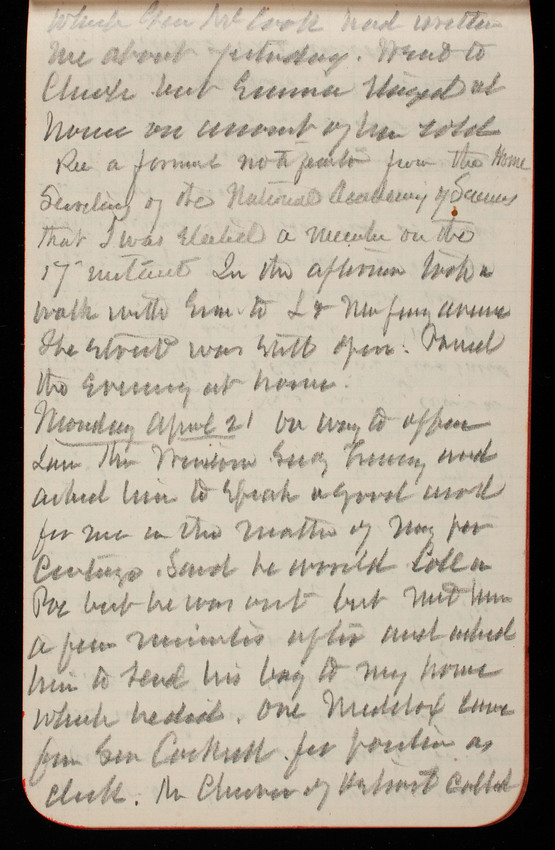 which Gen McCook had written
me about yesterday. Went to
Church but Emma stayed at
home on account of her cold
Rec a formal notification from the Home
Secretary of the National Academy of Sciences
that I was elected a member on the
17" instant In the afternoon took a
walk with Emma to L & New Jersey avenue
the street was still open. Passed
the evening at home.
Monday April 21 on way to office
saw Mr Windom Secy Treasury and
asked him to speak a good word
for me in the matter of my
Said he would Call on
but he was out but met him
a few minutes after and asked
him to send his bag to my home
which he did. One Maddox came
from Gen Cockrell for position as
clerk. Mr of Detroit called